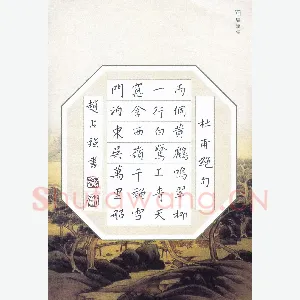 杜甫絶句
兩個黄鸝鳴翠柳
一行白鷺上青天
窗含西嶺千秋雪
門泊東吳萬里船
趙占書
Shufawang.CN